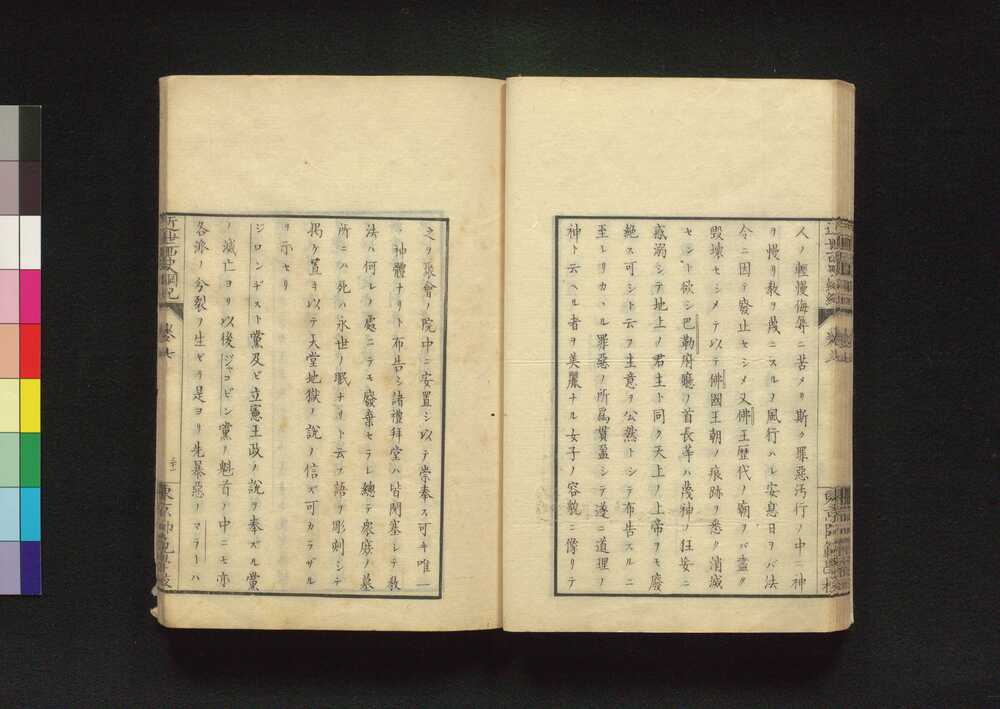 人ノ輕慢侮辱ニ苦メリ斯ク罪惡汚行ノ中ニ神
ヲ慢リ敎ヲ蔑ニスルノ風行ハレ安息日ヲバ法
令ニ因テ廢止セシメ又佛王歴代ノ廟ヲバ盡ク
毀壊セシメテ以テ佛國王朝ノ痕跡ヲ悉ク消滅
セント欲シ巴勒府廳ノ首長等ハ蔑神ノ狂妄ニ
惑溺シテ地上ノ君主ト同ク天上ノ上帝ヲモ廢
絶ス可シト云フ主意ヲ公然トシテ布告スルニ
至レリカヽル罪惡ノ所爲貫盈シテ遂ニ道理ノ
神ト云ヘル者ヲ美麗ナル女子ノ容貌ニ像リテ
之ヲ聚會ノ院中ニ安置シ以テ崇奉ス可キ唯一
ノ神體ナリト布告シ諸禮拜堂ハ皆閉塞シテ敎
法ハ何レノ處ニテモ廢棄セラレ總テ衆庶ノ墓
所ニハ死ハ永世ノ眠ナリト云フ語ヲ彫刻シテ
揭ケ置キ以テ天堂地獄ノ説ノ信ズ可カラザル
ヲ示セリ
ジロンヂスト黨及ビ立憲王政ノ説ヲ奉ズル黨
ノ滅亡ヨリ以後ジャコビン黨ノ魁首ノ中ニモ亦
各派ノ分裂ヲ生ゼリ是ヨリ先暴惡ノマラーハ
近世西史綱紀
卷七
東京師範學校